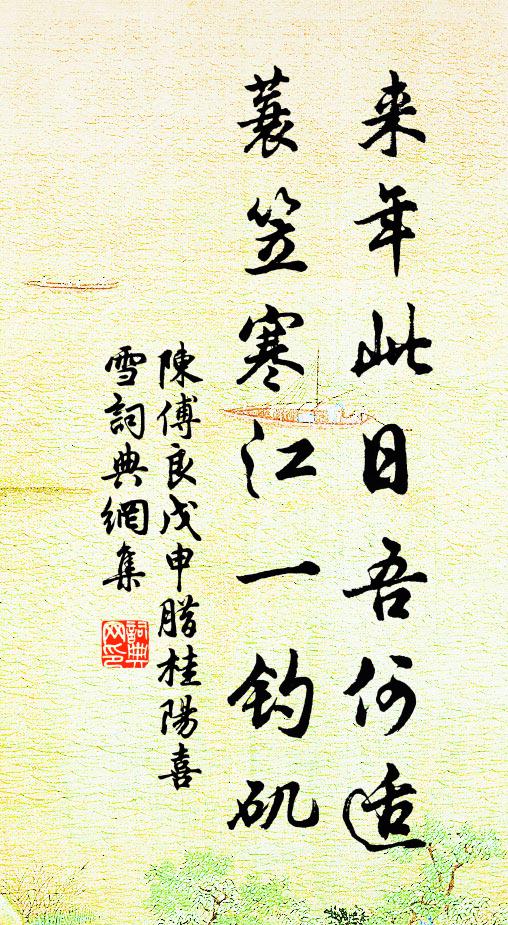 来年此日吾何适
蓑笠寒江一钓矶
陳傅良戊申腊桂陽喜
雪詞典網集
詞典
网印